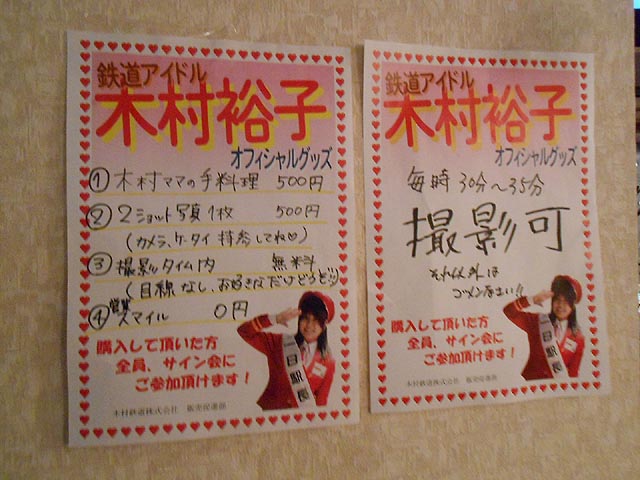 鉄道アイドル
木村裕子
オフィシャルグッズ
① 木村ママの手料理 500円
② 2ショット写真1枚 500円
(カメラ、ケータイ持参してね♡)
③ 撮影タイム内 無料
(目線なし、お好きなだけどうぞ
④ 営業スマイル 0円
購入して頂いた方
全員、サイン会に
ご参加頂けます!
一日駅長
木村鉄道株式会社 販売促進部
鉄道アイドル
木村裕子
オフィシャルグッズ
毎時30分〜35分
撮影可
それ以外は
ゴメンなさい!!
購入して頂いた方
全員、サイン会に
ご参加頂けます!
一日駅長
木村鉄道株式会社 販売促進部